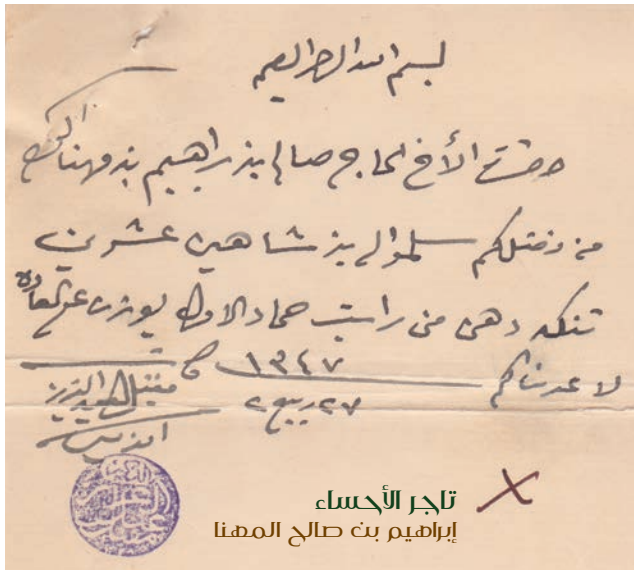 بسم الله الرحمن الرحيم
حضرة الأخ الحاج صالح بن ابراهيم بن مهنا
من فضلكم سلموا لبن شاهين عشرين
تنكه دهن من راتب جماد الاول يوزن على العاده
لا عدمناكم
١٣٤٧
٢٧ ربيع ٢
تاجر الأحساء
إبراهيم بن صالح المهنا